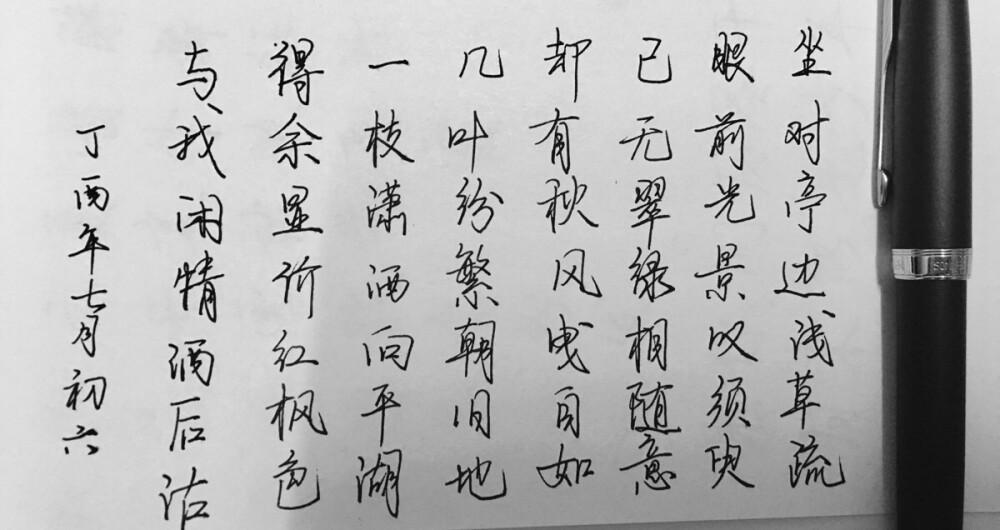 坐对亭边浅草疏
眼前光景叹须臾
已无翠绿相随意
却有秋风曳自如
几叶纷繁朝旧地
一枝潇洒向平湖
得余显许红枫色
与我闲情酒后沽
丁酉年七月初六